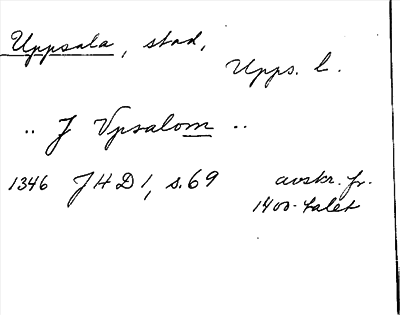 Uppsala, stad,
Upps. l.
.. J Vpsalom ..
1346 JHD 1, s. 69 avskr. fr.
1400-talet